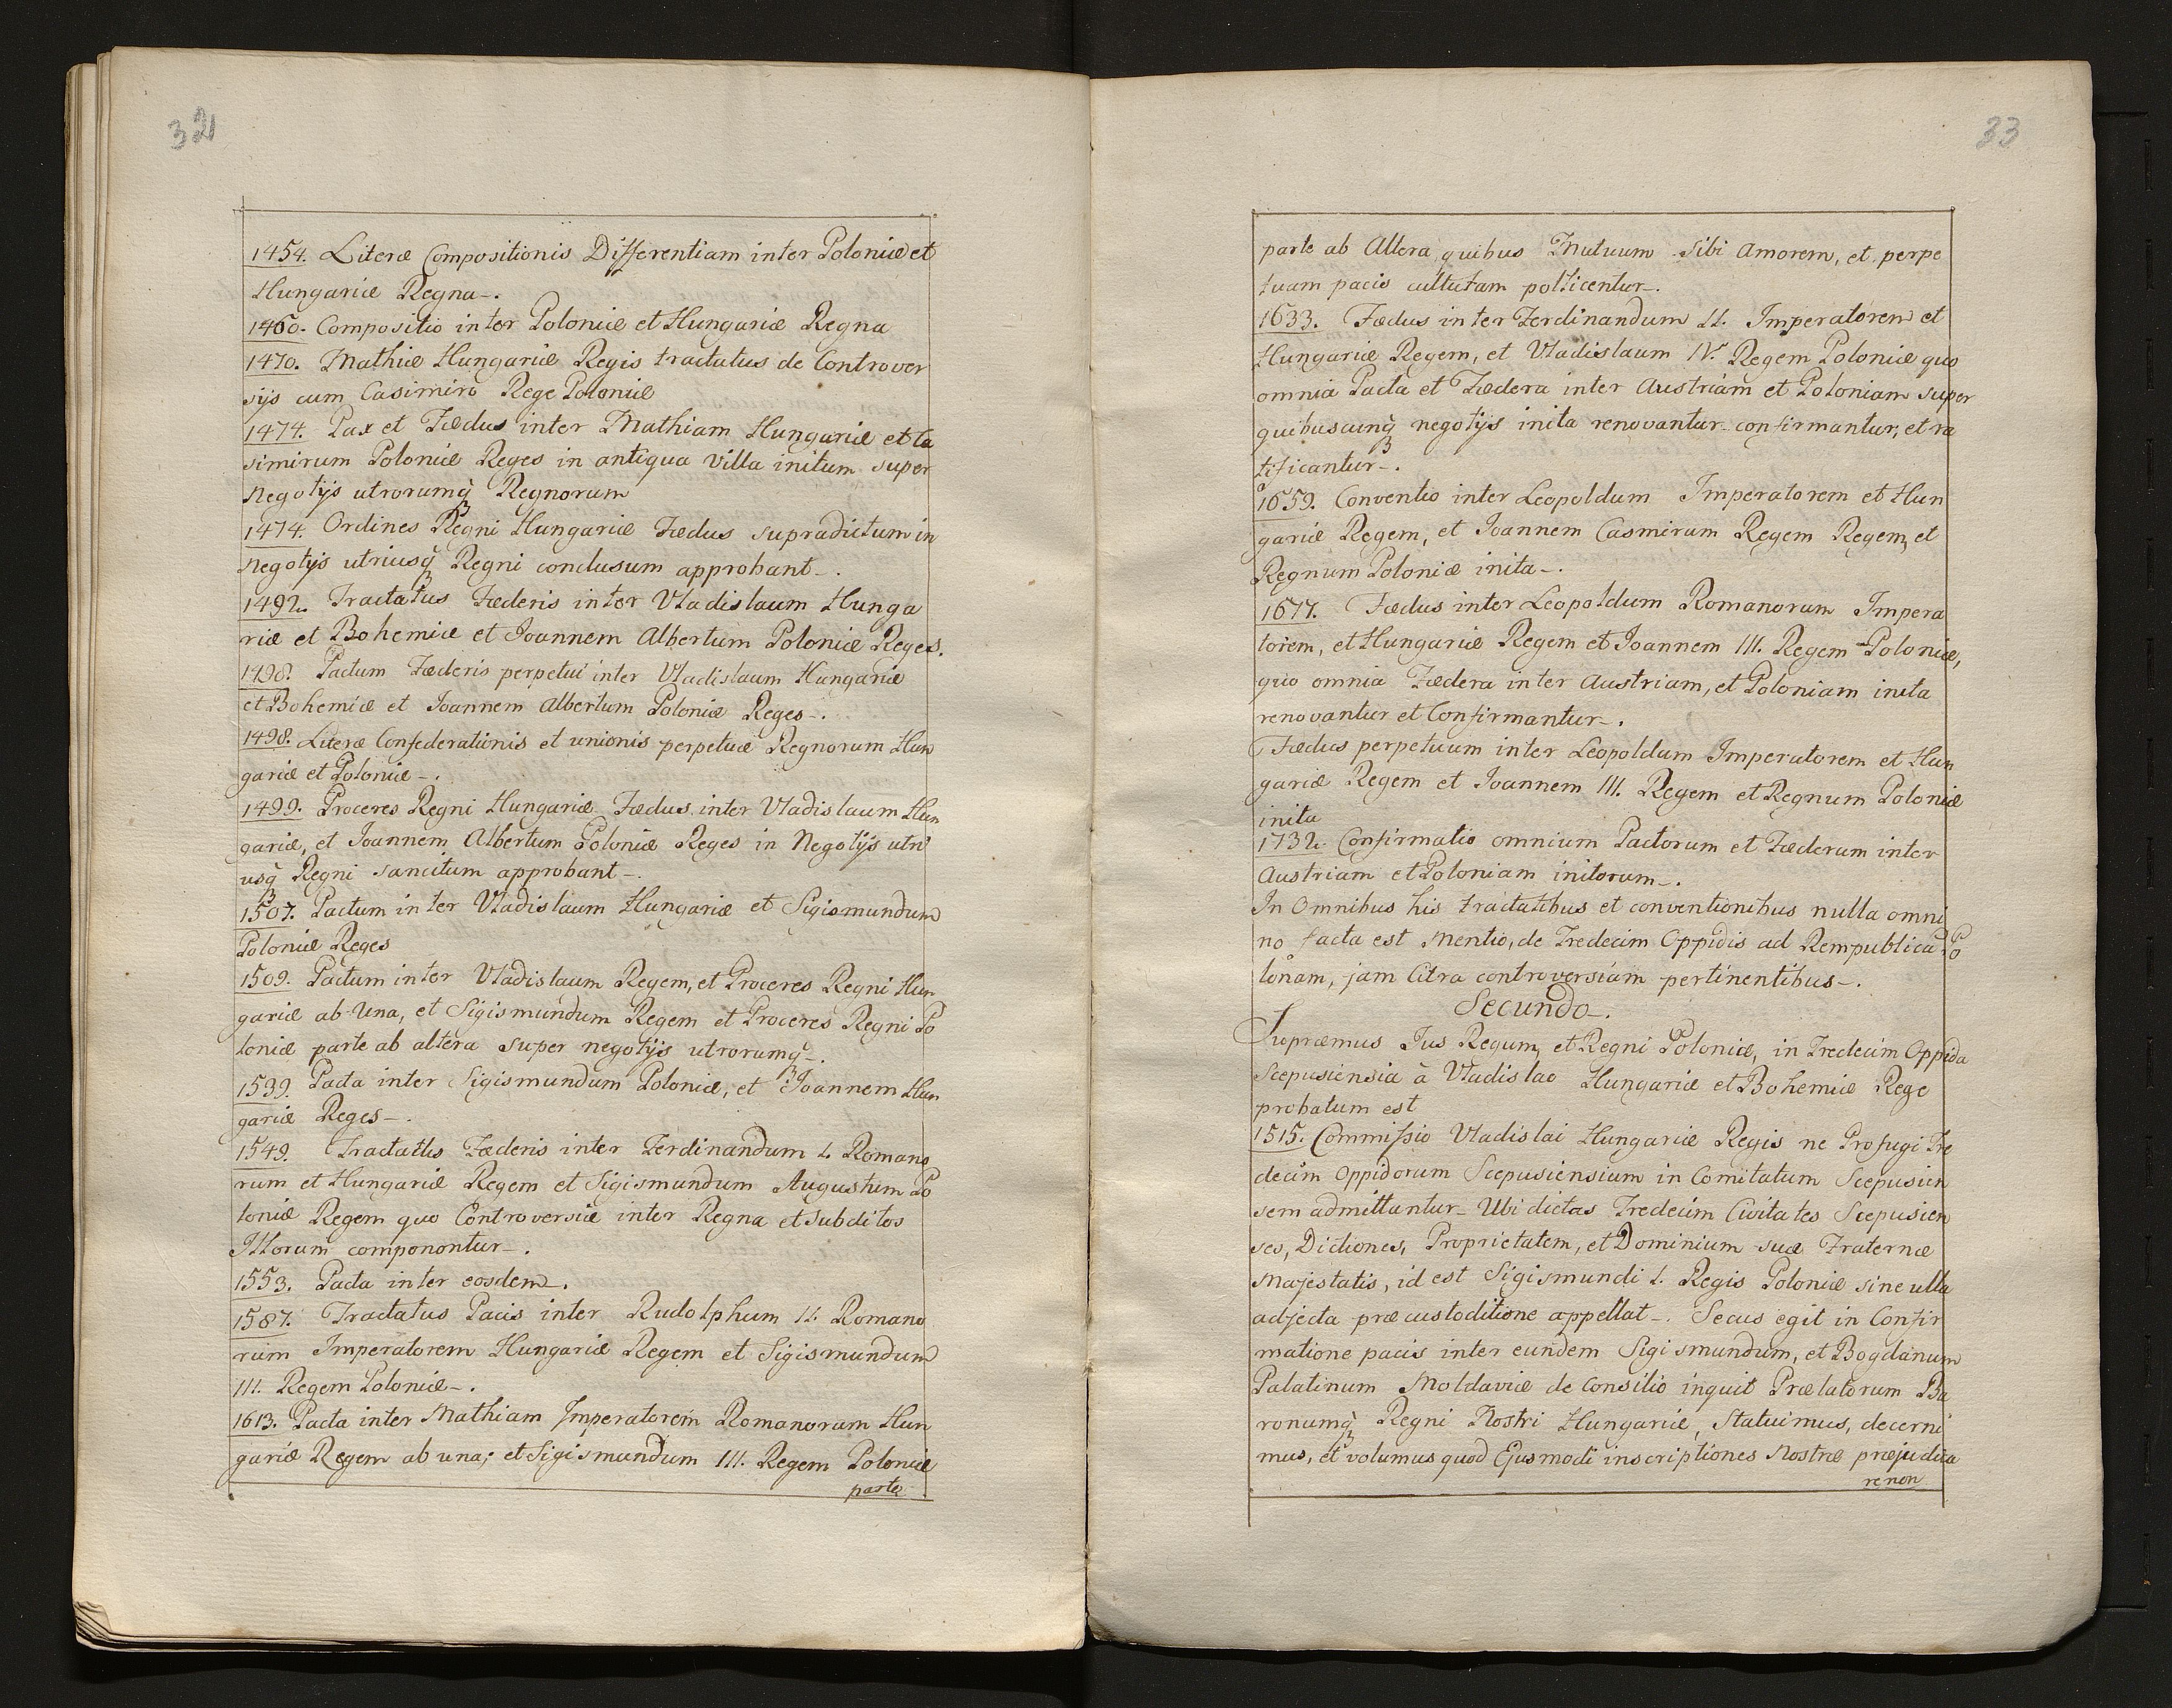 32
1454. Literæ Compositionis Differentiam inter Poloniæ et
Hungariæ Regna-.
1460. Compositio inter Poloniæ et Hungariæ Regna
1470. Mathiæ Hungariæ Regis tractatus de Controver
sijs cum Casimiro Rege Poloniæ
1474. Pax et Fædus inter Mathiam Hungariæ et Ca
simirum Poloniæ Reges in antiqua Villa initum super
Negotijs utrorumq̀ꝫ Regnorum
1474. Ordines Regni Hungariæ Fædus supradictum in
Negotijs utriusq̀ꝫ Regni conclusum approbant-.
1492. Tractatus Fæderis inter Vladislaum Hunga
riæ et Bohemiæ et Joannem Albertum Poloniæ Reges.
1498. Pactum Fæderis perpetui inter Vladislaum Hungariæ
et Bohemiæ et Joannem Albertum Poloniæ Reges-.
1498. Literæ Confederationis et unionis perpetuæ Regnorum Hun
gariæ et Poloniæ-.
1499. Proceres Regni Hungariæ Fædus inter Vladislaum Hun
gariæ, et Joannem Albertum Poloniæ Reges in Negotijs utri
usq̀ꝫ Regni sancitum approbant-.
1507. Pactum inter Vladislaum Hungariæ et Sigismundum
Poloniæ Reges
1509. Pactum inter Vladislaum Regem, et Proceres Regni Hun
gariæ ab Una, et Sigismundum Regem et Proceres Regni Po
loniæ parte ab altera super negotijs utrorumq̀ꝫ-.
1539. Pacta inter Sigismundum Poloniæ, et Joannem Hun
gariæ Reges-.
1549. Tractatus Fæderis inter Ferdinandum I. Romano
rum et Hungariæ Regem et Sigismundum Augustum Po
loniæ Regem quo Controversiæ inter Regna et subditos
Illorum componontur-.
1553. Pacta inter eosdem-.
1587. Tractatus Pacis inter Rudolphum II. Romano
rum Imperatorem Hungariæ Regem et Sigismundum
III. Regem Poloniæ-.
1613. Pacta inter Mathiam Imperatorem Romanorum Hun
gariæ Regem ab una; et Sigismundum III. Regem Poloniæ
parte
33
parte ab Altera quibus Mutuum sibi Amorem, et perpe
tuam pacis cultutam pollicentur-.
1633. Fædus inter Ferdinandum II. Imperatorem et
Hungariæ Regem, et Vladislaum IV. Regem Poloniæ quo
omnia Pacta et Fædera inter Austriam et Poloniam super
quibuscunq̀ꝫ negotijs inita renovantur confirmantur, et ra
tificantur-.
1659. Conventio inter Leopoldum Imperatorem et Hun
gariæ Regem, et Joannem Casmirum Regem Regem, et
Regnum Poloniæ inita-.
1677. Fædus inter Leopoldum Romanorum Impera
torem, et Hungariæ Regem et Joannem III. Regem Poloniæ,
quo omnia Fædera inter Austriam, et Poloniam inita
renovantur et Confirmantur-.
Fædus perpetuum inter Leopoldum Imperatorem et Hun
gariæ Regem et Joannem III. Regem et Regnum Poloniæ
inita
1732. Confirmatio omnium Pactorum et Fæderum inter
Austriam et Poloniam initorum-.
In Omnibus his tractatibus et conventionibus nulla omni
no facta est Mentio, de Tredecim Oppidis ad Rempublicā Po
lonam, jam Citra controversiam pertinentibus-.
Secundo-.
Supræmus Jus Regum, et Regni Poloniæ, in Tredecim Oppida
Scepusiensia à Vladislao Hungariæ et Bohemiæ Rege
probatum est
1515. Commissio Vladislai Hungariæ Regis ne Profugi Tre
decim Oppidorum Scepusiensium in Comitatum Scepusien
sem admittantur- Ubi dictas Tredecim Civitates Scepusien
ses, Dictiones, Proprietatem, et Dominium suæ Fraternæ
Majestatis, id est Sigismundi I. Regis Poloniæ sine ulla
adjecta præ custoditione appellat-. Secus egit in Confir
matione pacis inter eundem Sigismundum, et Bogdanum
Palatinum Moldaviæ de Consilio inquit Prælatorum Ba
ronumq̀ꝫ Regni Nostri Hungariæ, Statuimus, decerni
mus, et volumus quod Ejusmodi inscriptiones Nostræ præjudica
re non